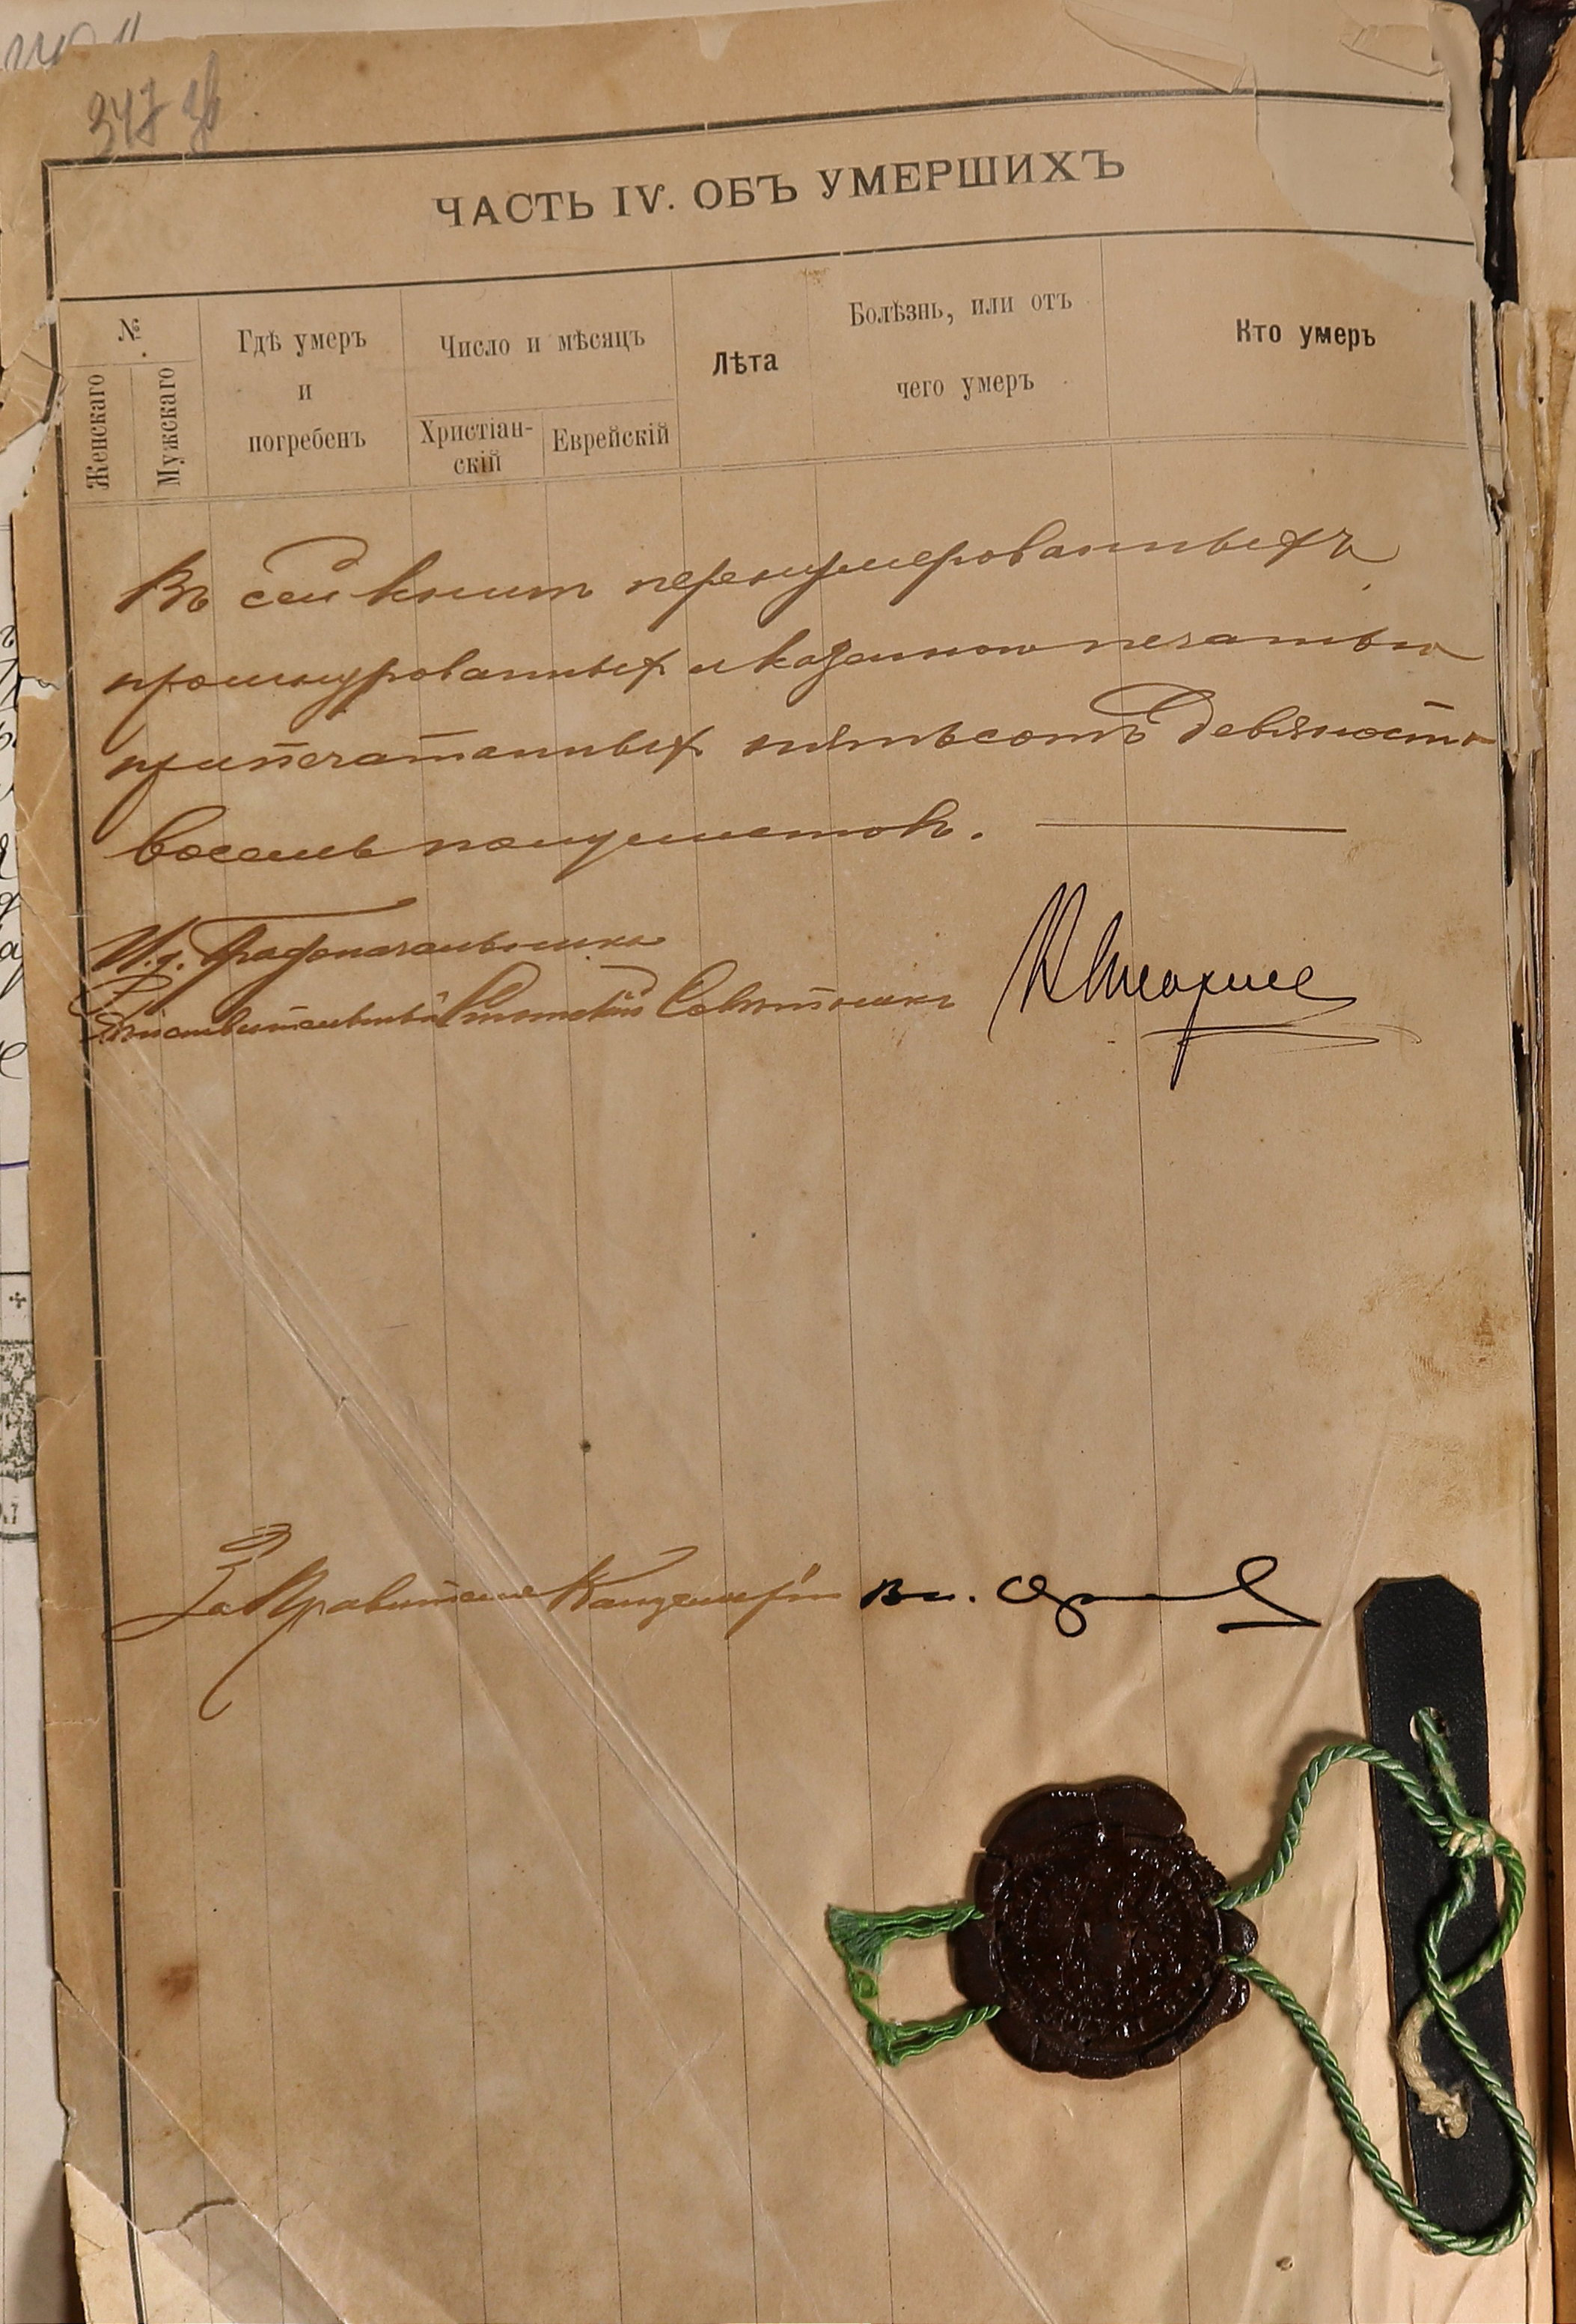 347 зв
ЧАСТЬ IV. ОБЪ УМЕРШИХЪ
№
Женскаго
Мужскаго
Гдѣ умеръ
и
погребенъ
Число и мѣсяцъ
Христіан-
скій
Еврейскій
Лѣта
Болѣзнь, или отъ
чего умеръ
Кто умеръ
Въ сей книгѣ перенумерованныхъ
прошнурованныхъ и казенною печатью
припечатанныхъ пятьсотъ девяносто
восемь полулистовъ.
И. д. Градоначальника
Дѣйствительный Статскій Совѣтникъ
За Правителя Канцеляріи Вл.